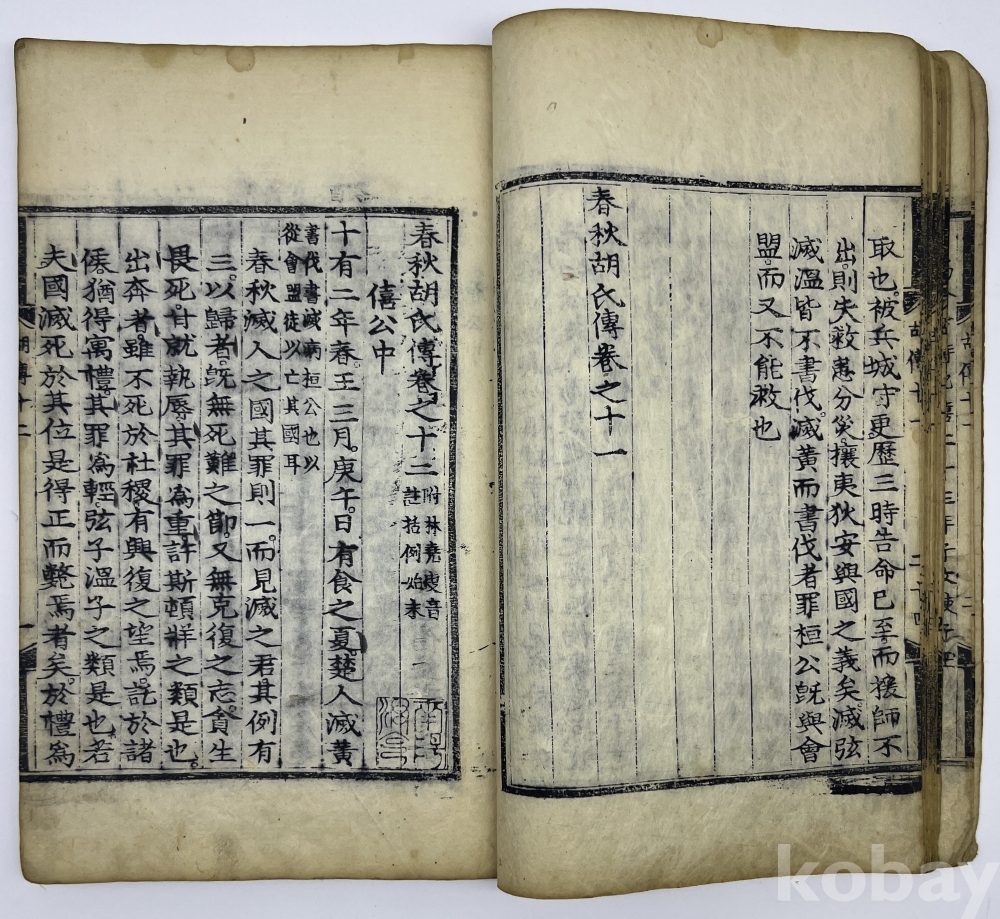 取也被兵城守更歷三時告命已至而援師不
出則失救患分災攘夷狄安與國之義矣滅弦
滅溫皆不書伐滅黃而書伐者罪桓公旣與會
盟而又不能救也
春秋胡氏傳卷之十一
胡傳十一
春秋胡氏傳卷之十二 附林堯叟音
註括例始末
僖公中
十有二年春王三月庚午日有食之夏楚人滅黃
書伐書滅病桓公也以
從會盟徒以亡其國耳
春秋滅人之國其罪則一而見滅之君其例有
三以歸者旣無死難之節又無克復之志貪生
畏死甘就執辱其罪為重許斯頓牂之類是也
出奔者雖不死於社稷有興復之望焉託於諸
侯猶得寓禮其罪為輕弦子溫子之類是也若
夫國滅死於其位是得正而斃焉者矣於禮為
胡傳十二
一
kobay